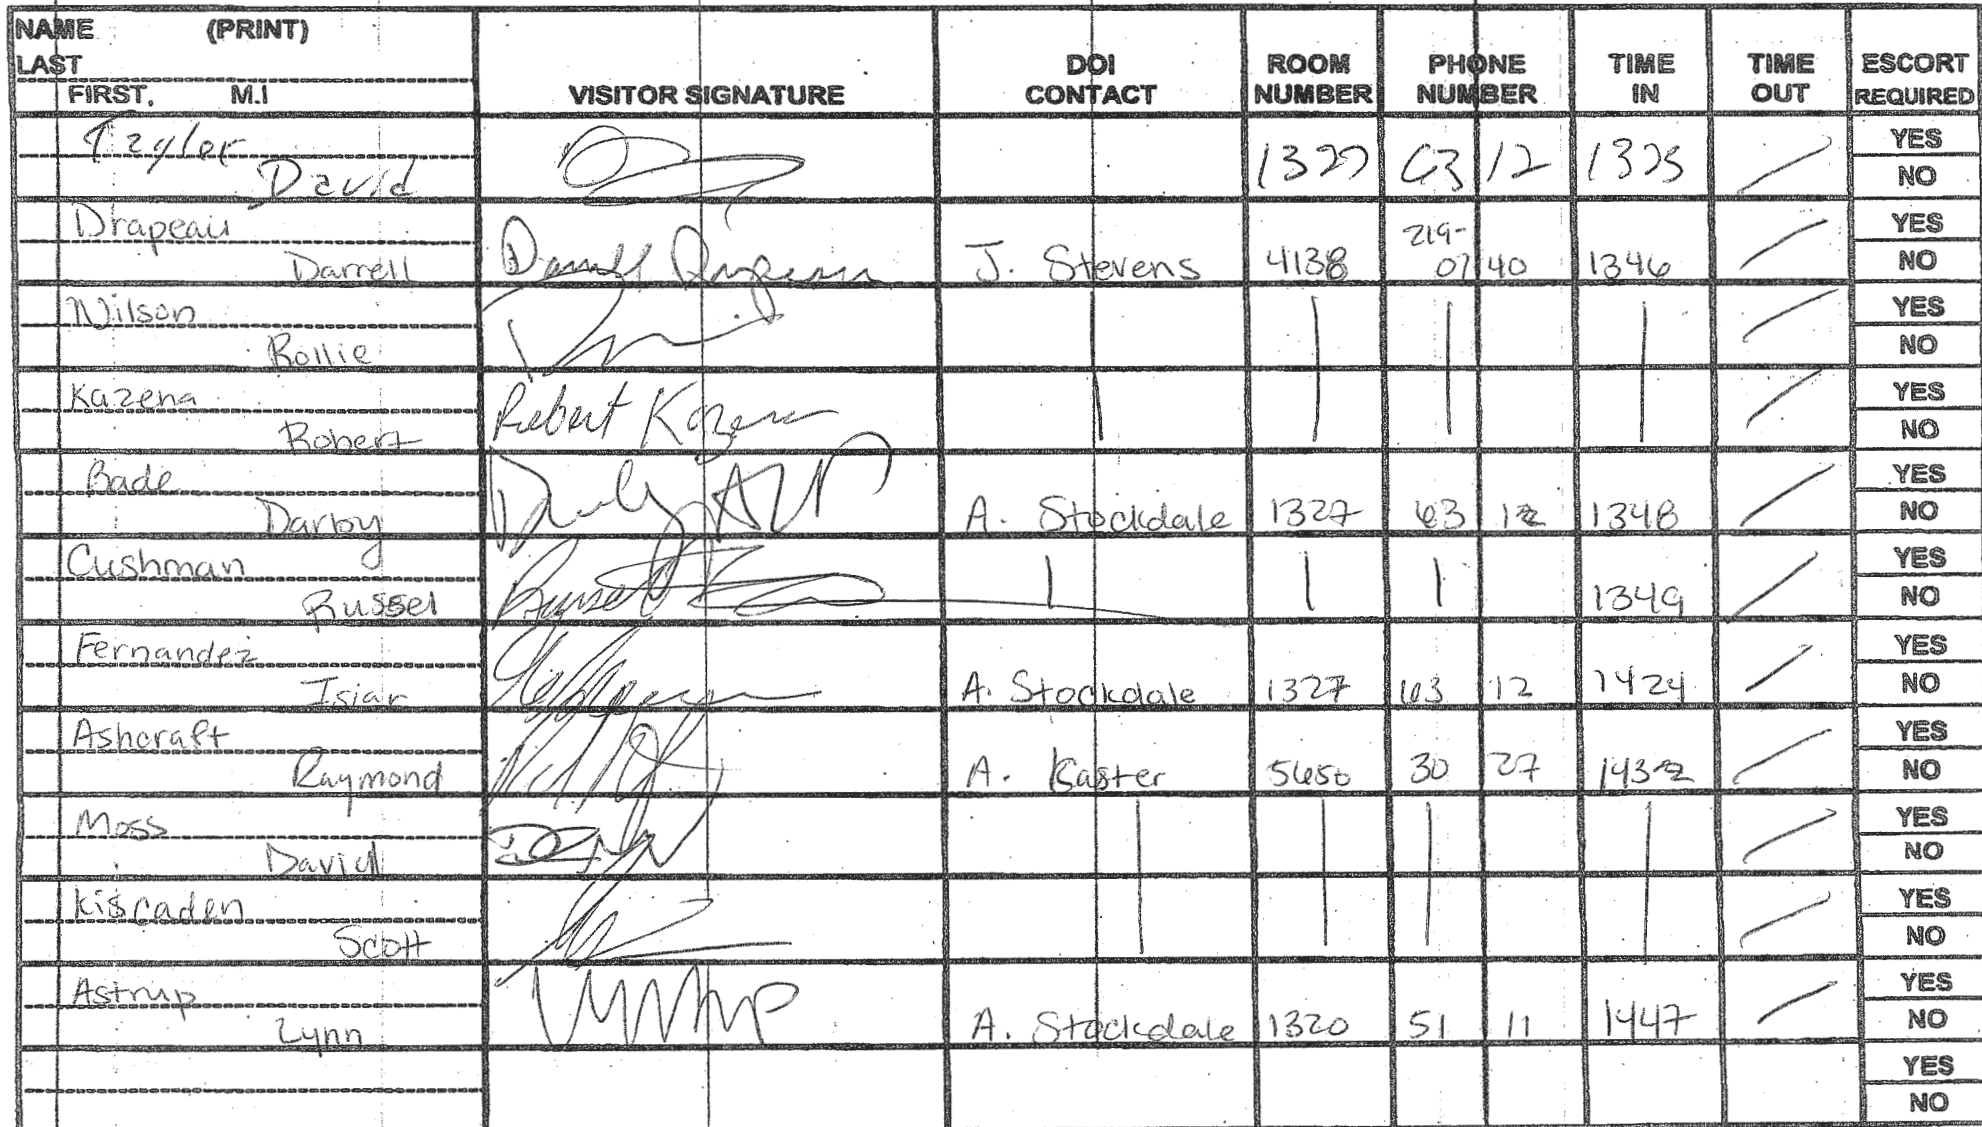 NAME (PRINT)
LAST
FIRST, M.I
VISITOR SIGNATURE
DOI CONTACT
ROOM NUMBER
PHONE NUMBER
TIME IN
TIME OUT
ESCORT REQUIRED
Taylor 1327 63 12 1325 YES
David NO
Drapeau 219- YES
Darrell Darrell Drapeau J. Stevens 4138 07 40 1346 NO
Wilson YES
Rollie NO
Kazena Robert Kazena YES
Robert NO
Bade YES
Darby A. Stockdale 1327 63 12 1348 NO
Cushman YES
Russel 1349 NO
Fernandez YES
Isiar A. Stockdale 1327 63 12 1424 NO
Ashcraft YES
Raymond A. Kaster 5650 30 27 1432 NO
Moss YES
David NO
Kiscaden YES
Scott NO
Astrup YES
Lynn A. Stockdale 1320 51 11 1447 NO
YES
NO